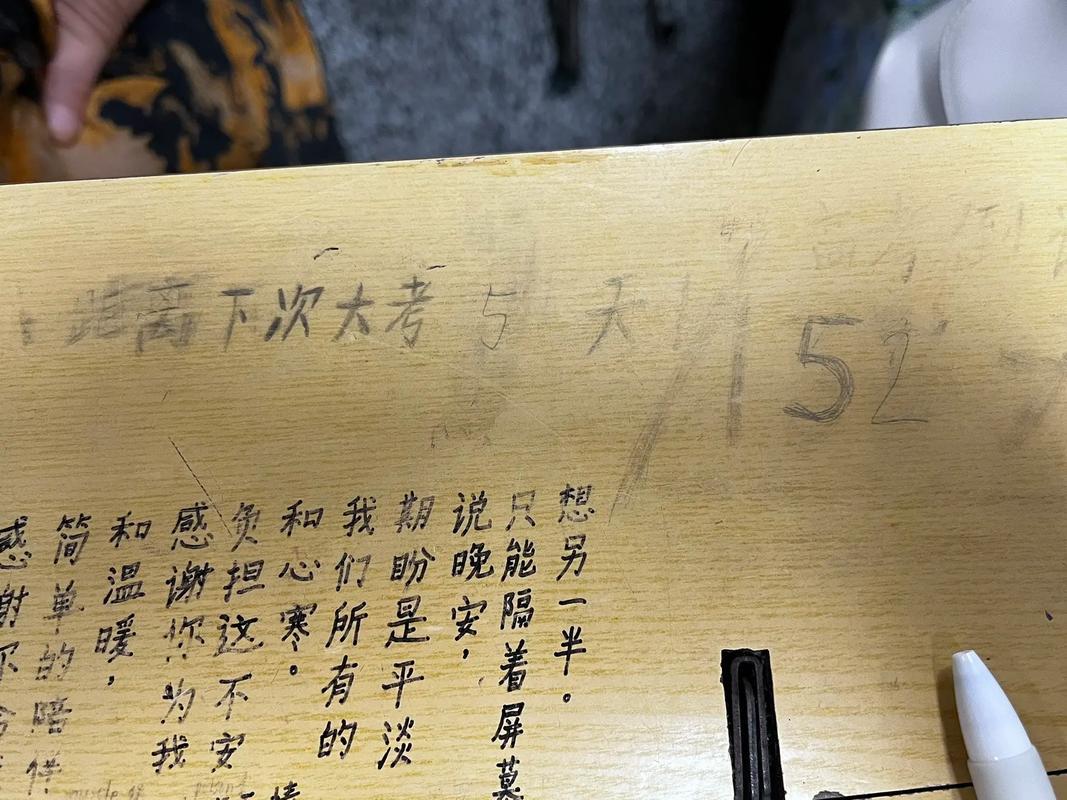 距离下次大考 5 天
高考倒
52
感谢你
简单的陪伴
和温暖，
感谢你为我
负担这不安
和心寒。
情
我们所有的
期盼是平淡
说晚安，
只能隔着屏幕
想另一半。